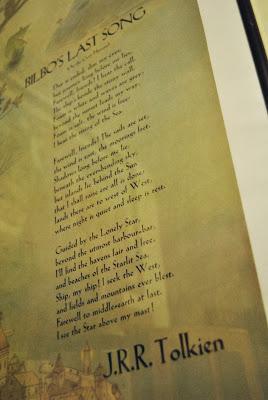 BILBO'S LAST SONG
(At the Grey Havens)
Day is ended, dim my eyes,
but journey long before me lies.
Farewell, friends! I hear the call.
The ship's beside the stony wall.
Foam is white and waves are grey;
beyond the sunset leads my way.
Foam is salt, the wind is free;
I hear the rising of the Sea.
Farewell, friends! The sails are set,
the wind is east, the moorings fret.
Shadows long before me lie,
beneath the ever-bending sky,
but islands lie behind the Sun
that I shall raise ere all is done;
lands there are to west of West,
where night is quiet and sleep is rest.
Guided by the Lonely Star,
beyond the utmost harbour-bar,
I'll find the havens fair and free,
and beaches of the Starlit Sea.
Ship, my ship! I seek the West,
and fields and mountains ever blest.
Farewell to Middle-earth at last.
I see the Star above my mast!
J.R.R. Tolkien